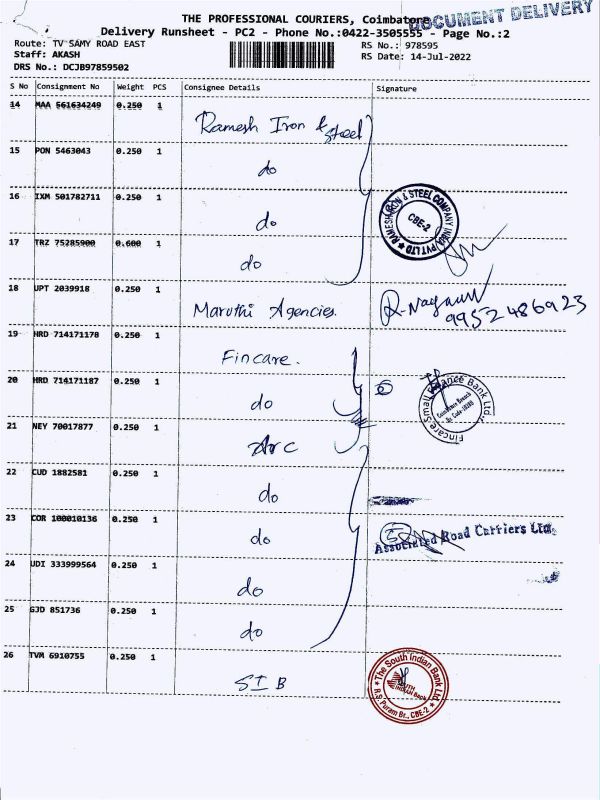 THE PROFESSIONAL COURIERS, Coimbatore
DOCUMENT DELIVERY
Delivery Runsheet - PC2 - Phone No.:0422-3505555 - Page No.:2
Route: TV SAMY ROAD EAST
RS No.: 978595
Staff: AKASH
RS Date: 14-Jul-2022
DRS No.: DCJB97859502
S No Consignment No Weight PCS Consignee Details Signature
14 MAA 561634249 0.250 1 Ramesh Iron & Steel
15 PON 5463043 0.250 1 do
16 IXM 501782711 0.250 1 do
RAMESH IRON & STEEL COMPANY INDIA PVT LTD
CBE-2
17 TRZ 75285900 0.600 1 do
18 UPT 2039918 0.250 1 Maruthi Agencies.
9952486923
19 HRD 714171178 0.250 1 Fincare.
20 HRD 714171187 0.250 1 do
Fincare Small Finance Bank Ltd.
Coimbatore Branch
21 NEY 70017877 0.250 1 Arc
22 CUD 1882581 0.250 1 do
23 COR 100010136 0.250 1 do
Associated Road Carriers Ltd.
24 UDI 333999564 0.250 1 do
25 GJD 851736 0.250 1 do
26 TVM 6910755 0.250 1 SIB
The South Indian Bank Ltd.
SOUTH INDIAN Bank
R.S. Puram Br., CBE-2